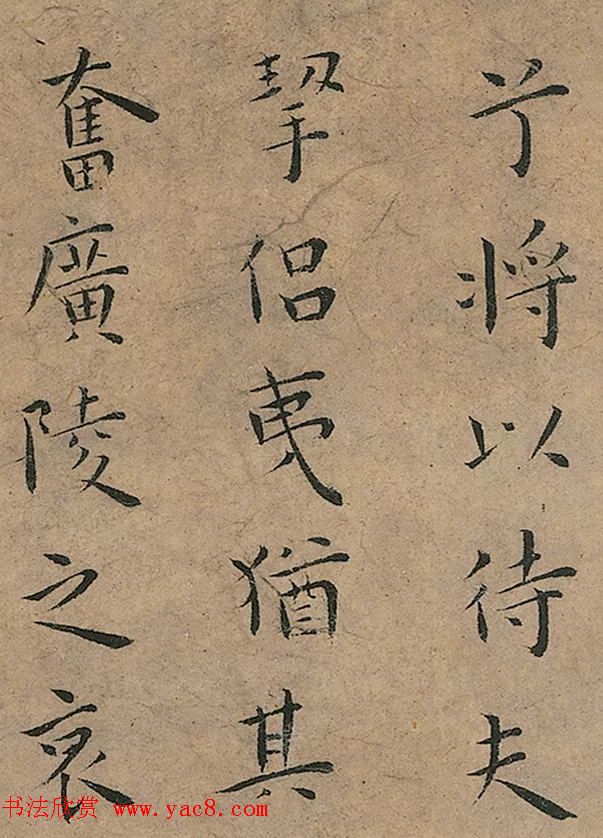 兮將以待夫
挈侣夷猶其
奮廣陵之哀
书法欣赏 www.yac8.com